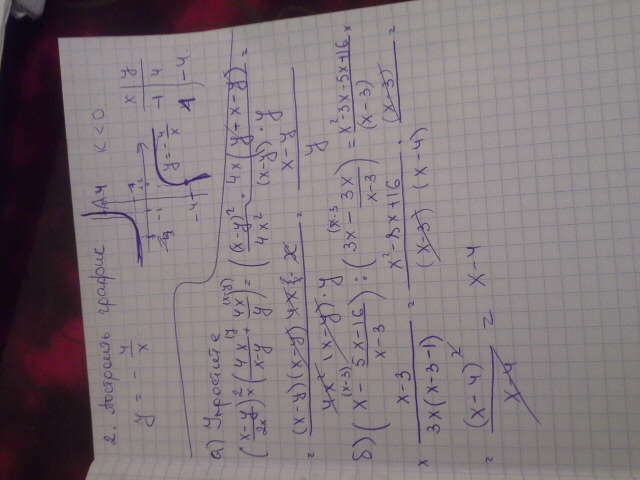 2. Построить график
y = - 4/x
K < 0
x | y
-1 | 4
1 | -4
y = - 4/x
-4
а) Упростите
((x-y)/2x)² × (4x/(x-y) + 4x/y) = (x-y)²/4x² · 4x(y+x-y)/((x-y)·y) =
= (x-y)(x-y) 4x · x / 4x² (x-y) · y = (x-y)/y
б) (x - (5x-16)/(x-3)) : (3x - 3x/(x-3)) = (x²-3x-5x+16)/(x-3) ×
× (x-3)/3x(x-3-1) = (x²-8x+16)/((x-3)(x-4)) · (x-3) =
= (x-4)²/(x-4) = x-4